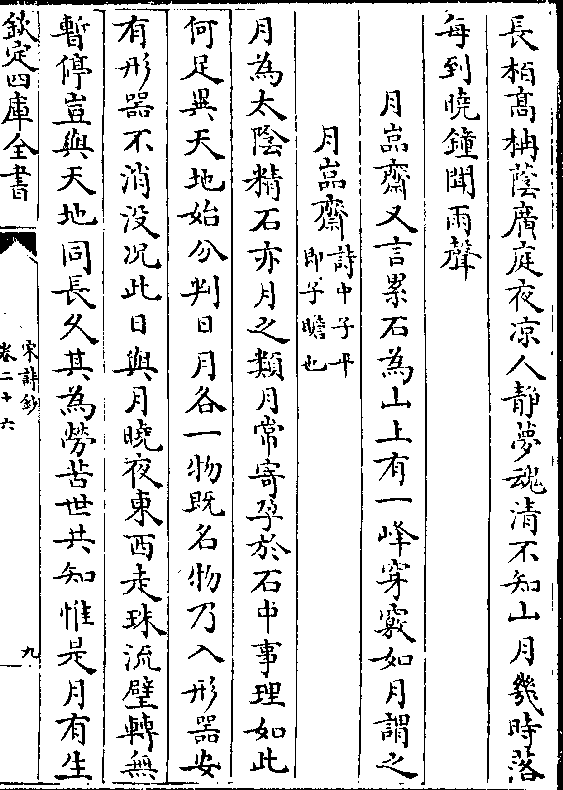 長栢髙柟蔭廣庭夜凉人靜夢魂清不知山月幾時落
每到曉鐘聞雨聲
月嵓齋又言累石為山上有一峰穿竅如月謂之
月嵓齋詩中子平
即子瞻也
月為太陰精石亦月之類月常寄孕於石中事理如此
何足異天地始分判日月各一物既名物乃入形器安
有形器不消没况此日與月曉夜東西走珠流璧轉無
暫停豈與天地同長久其為勞苦世共知惟是月有生
欽定四庫全書
宋詩鈔
卷二十六
九